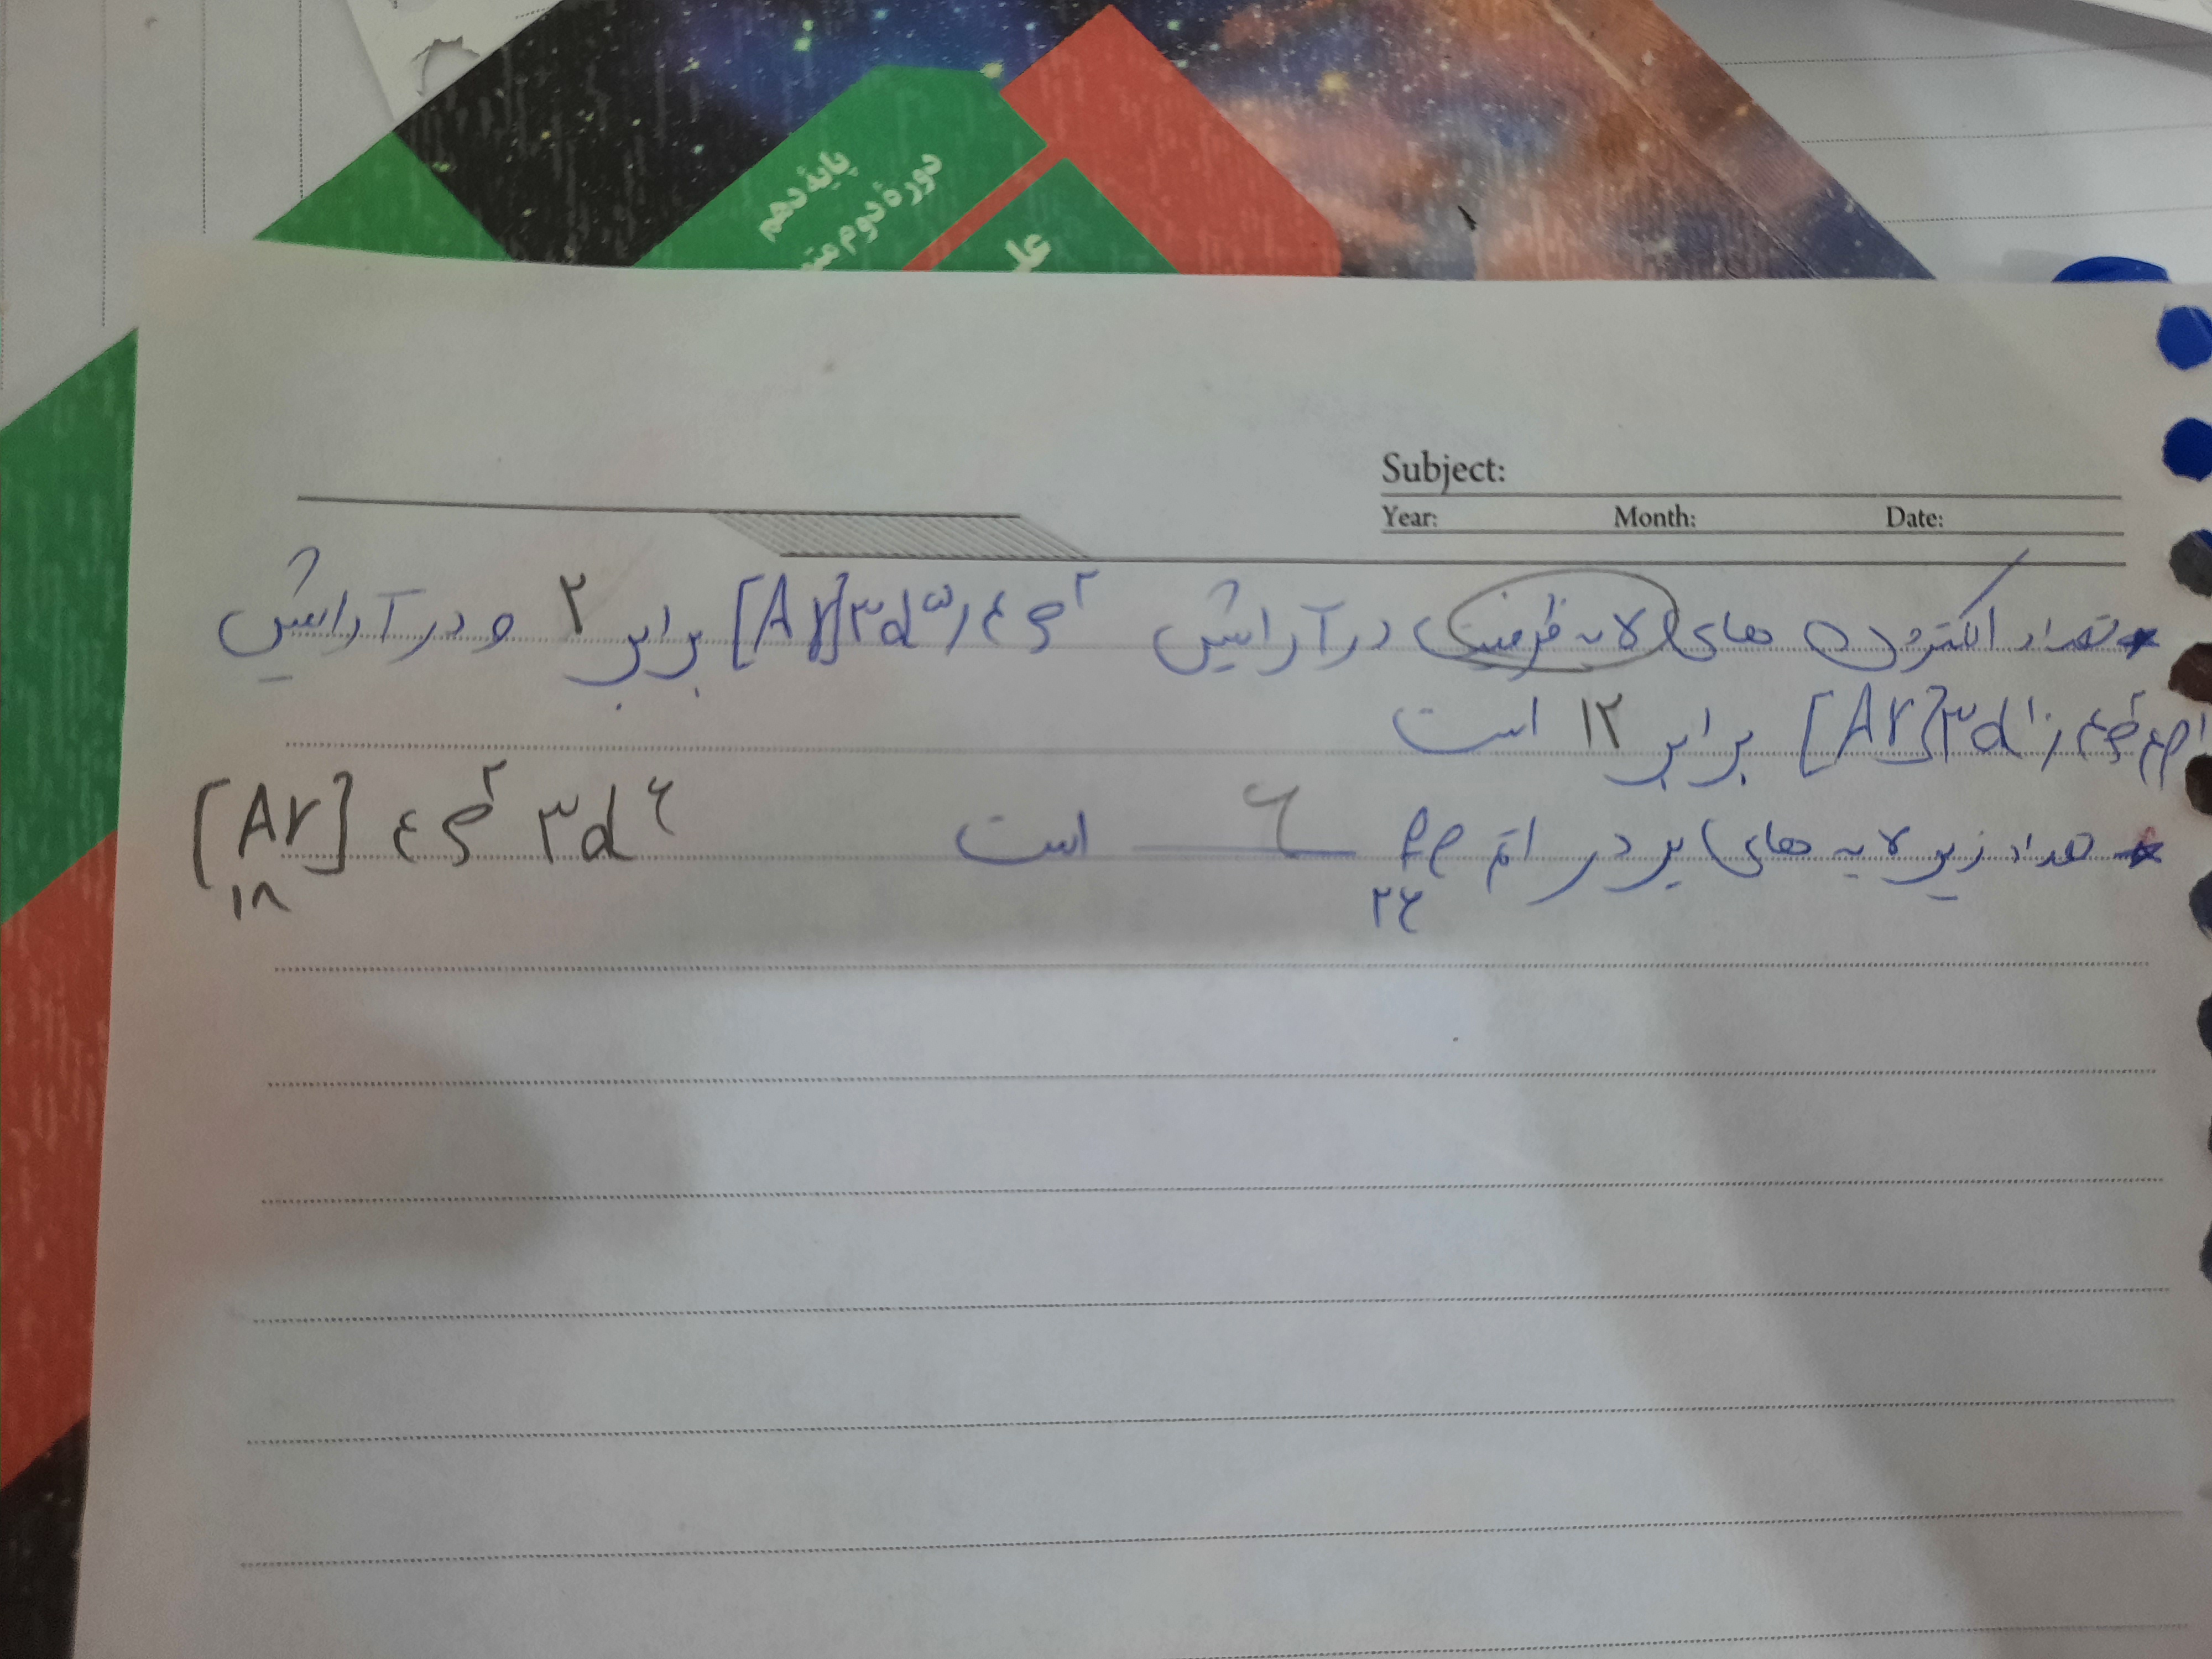 پایهٔ دهم
دورهٔ دوم متو
علو
Subject:
Year: Month: Date:
تعداد الکترون های لایه ظرفیت در آرایش [Ar]۳d۵/۴s۲ برابر ۲ و در آرایش
[Ar]۳d۱۰/۴s۲۴p۱ برابر ۱۲ است
تعداد زیر لایه های پر در اتم ۲۶Fe ۶ است [Ar] ۴s۲ ۳d۶
۱۸